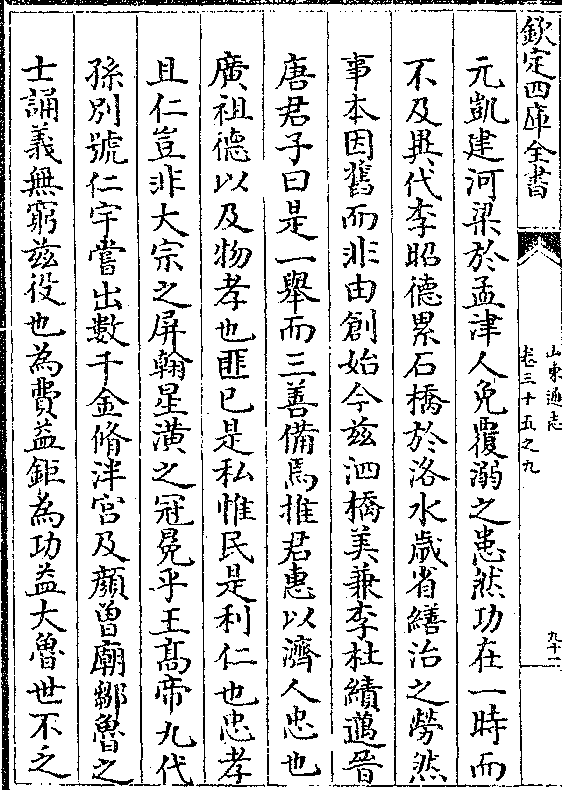 欽定四庫全書
山東通志
卷三十五之九
九十一
元凱建河梁於孟津人免覆溺之患然功在一時而
不及異代李昭德累石橋於洛水歲省繕治之勞然
事本因舊而非由創始今兹泗橋美兼李杜績邁晉
唐君子曰是一舉而三善備焉推君惠以濟人忠也
廣祖德以及物孝也匪已是私惟民是利仁也忠孝
且仁豈非大宗之屏翰星潢之冠冕乎王髙帝九代
孫别號仁宇嘗出數千金脩泮宮及顔曾廟鄒魯之
士誦義無窮兹役也為費益鉅為功益大魯世不乏